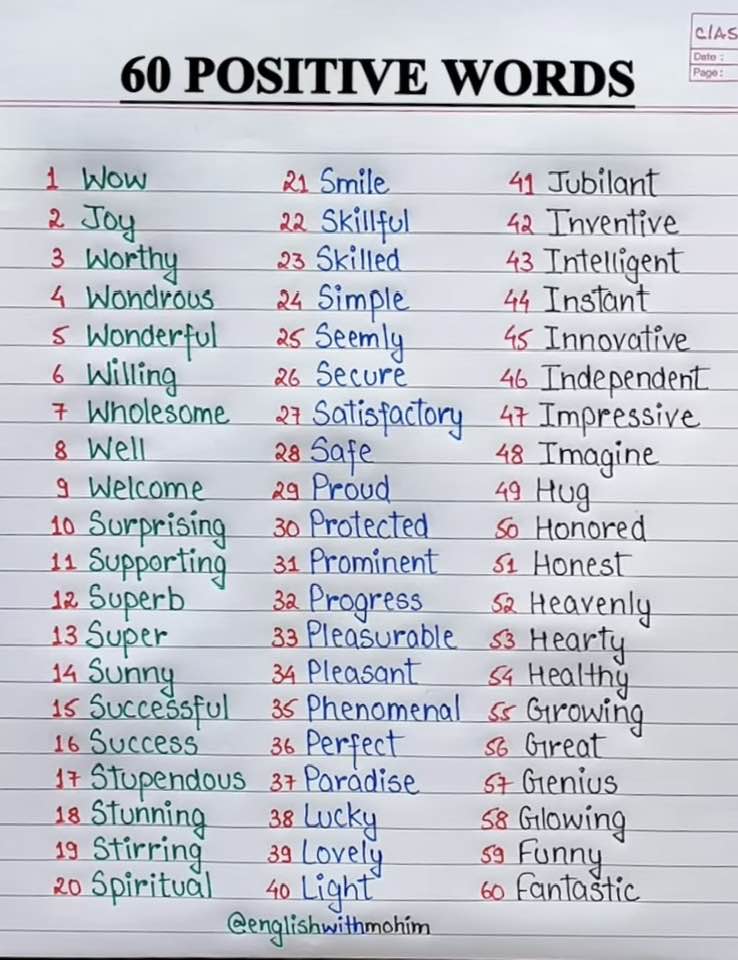 CLAS
Date :
Page :
60 POSITIVE WORDS
1 Wow
2 Joy
3 Worthy
4 Wondrous
5 Wonderful
6 Willing
7 Wholesome
8 Well
9 Welcome
10 Surprising
11 Supporting
12 Superb
13 Super
14 Sunny
15 Successful
16 Success
17 Stupendous
18 Stunning
19 Stirring
20 Spiritual
21 Smile
22 Skillful
23 Skilled
24 Simple
25 Seemly
26 Secure
27 Satisfactory
28 Safe
29 Proud
30 Protected
31 Prominent
32 Progress
33 Pleasurable
34 Pleasant
35 Phenomenal
36 Perfect
37 Paradise
38 Lucky
39 Lovely
40 Light
41 Jubilant
42 Inventive
43 Intelligent
44 Instant
45 Innovative
46 Independent
47 Impressive
48 Imagine
49 Hug
50 Honored
51 Honest
52 Heavenly
53 Hearty
54 Healthy
55 Growing
56 Great
57 Genius
58 Glowing
59 Funny
60 Fantastic
@englishwithmohim